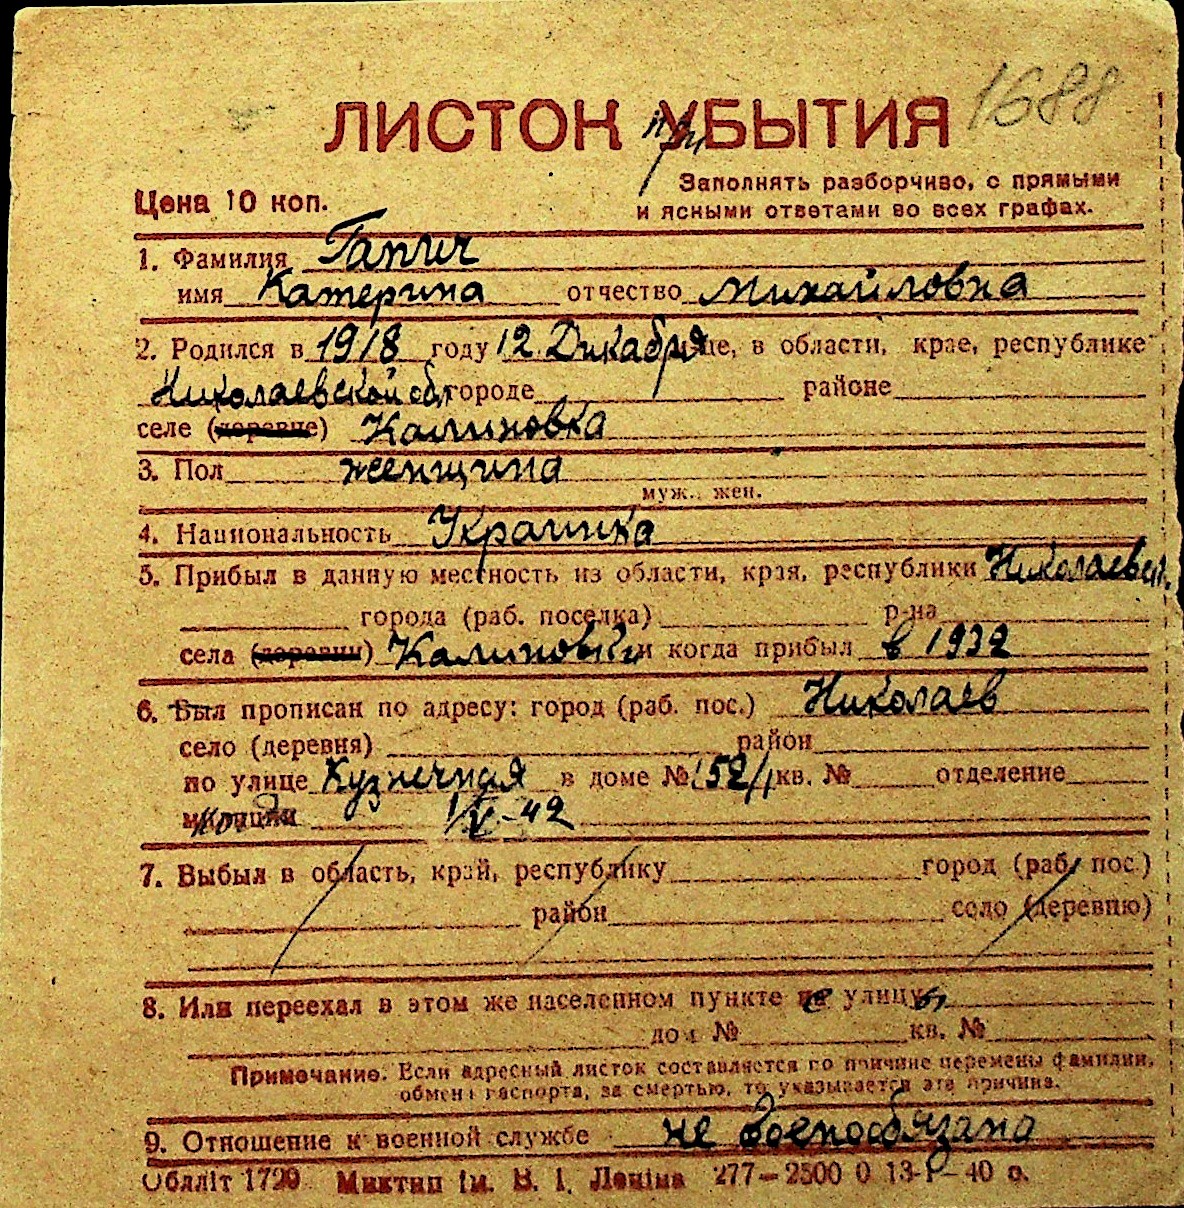 1688
ЛИСТОК УБЫТИЯ
при
Цена 10 коп.
Заполнять разборчиво, с прямыми
и ясными ответами во всех графах.
1. Фамилия Гапич
имя Катерина отчество Михайловна
2. Родился в 1918 году 12 Дикабря це, в области, крае, республике
Николаевской обл городе районе
селе (деревне) Калиновка
3. Пол женщина
муж., жен.
4. Национальность Украинка
5. Прибыл в данную местность из области, края, республики Николаевск.
города (раб. поселка) р-на
села (деревни) Калиновки и когда прибыл в 1932
6. Был прописан по адресу: город (раб. пос.) Николаев
село (деревня) район
по улице Кузнечная в доме № 152/1 кв. № отделение
милиции 1/V-42
7. Выбыл в область, край, республику город (раб. пос.)
район село (деревню)
8. Или переехал в этом же населенном пункте улицу
дом № кв. №
Примечание. Если адресный листок составляется по причине перемены фамилии,
обмена паспорта, за смертью, то указывается эта причина.
9. Отношение к военной службе не военообязана
Обллiт 1720 Миктип iм. В. I. Ленiна 277–2500 0 13-I-40 р.